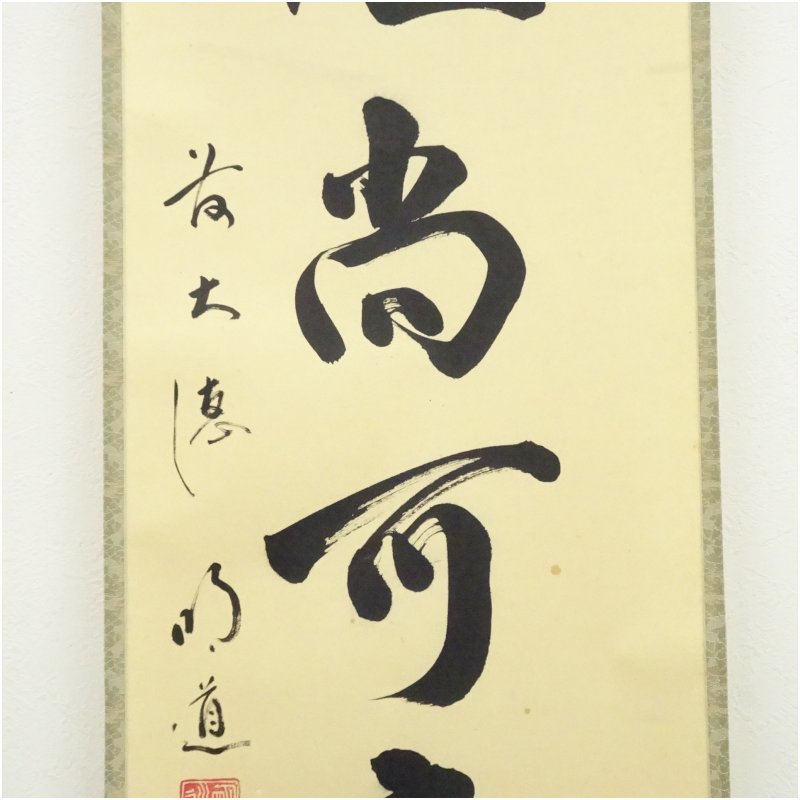 尚可
前大徳 明道